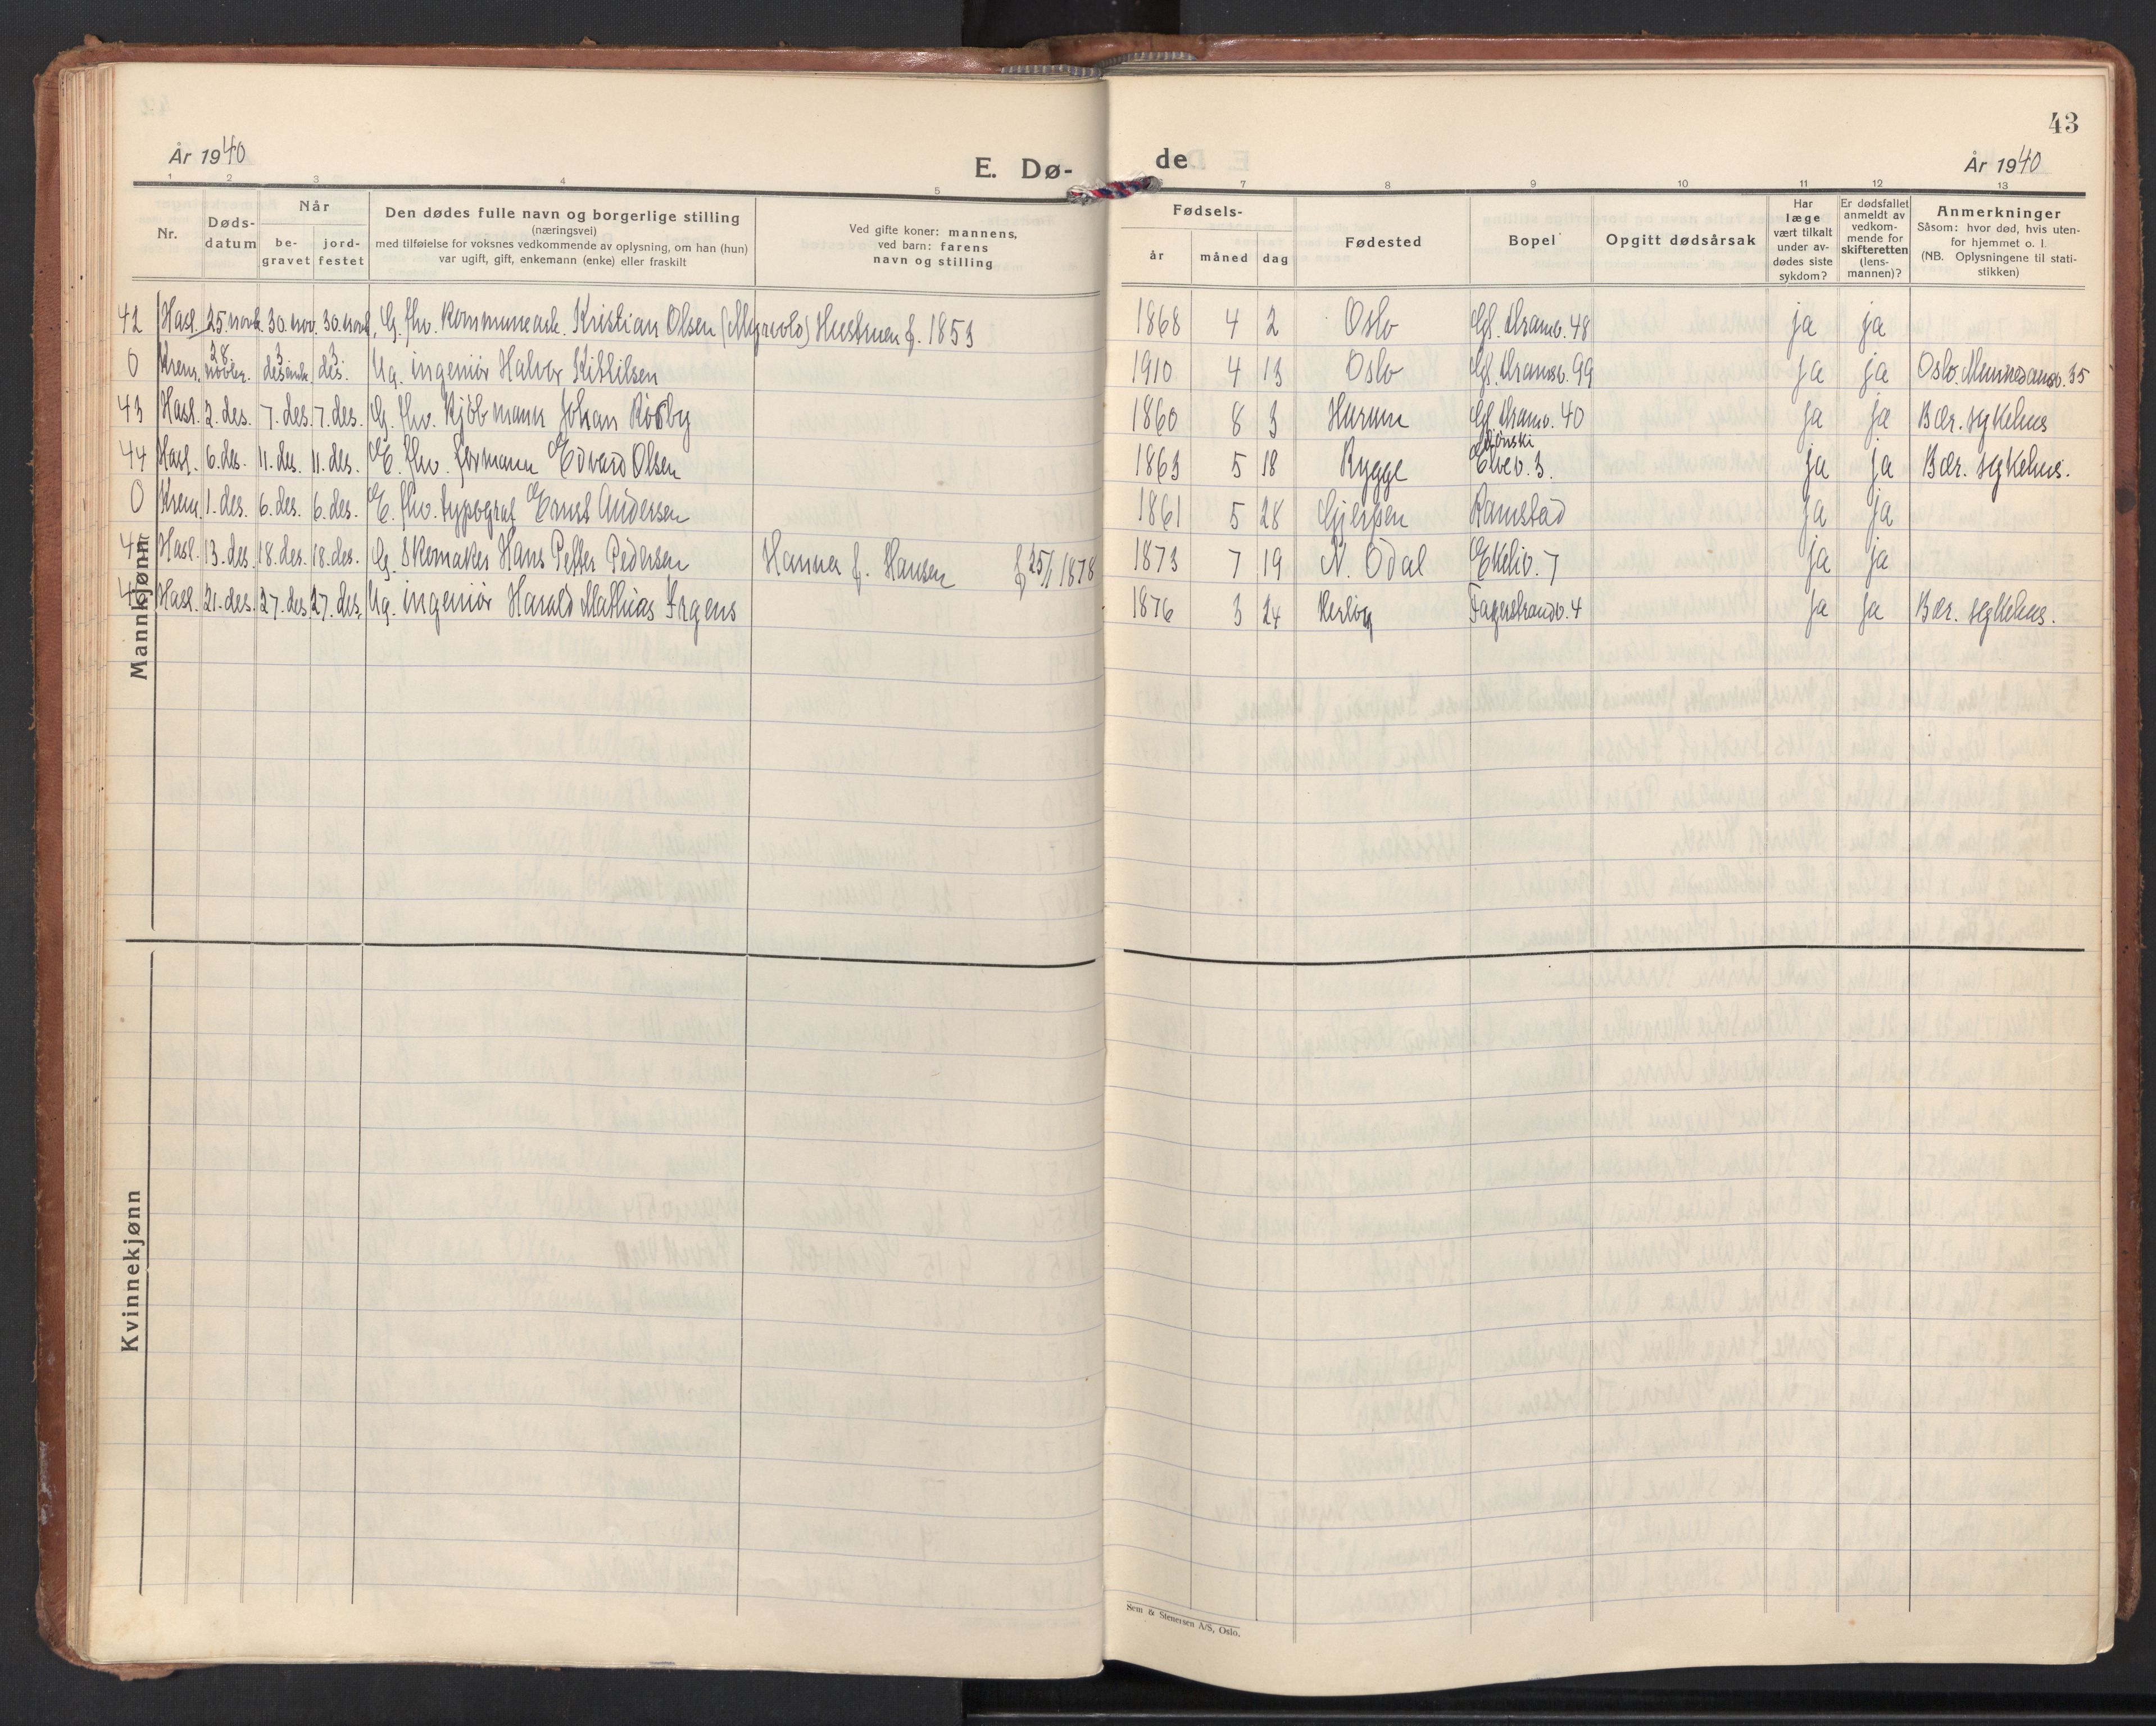 43
År 1940
E. Dø-
de
År 1940
1 2 3 4 5 7 8 9 10 11 12 13
Nr.
Døds-
datum
Når
be-
gravet
jord-
festet
Den dødes fulle navn og borgerlige stilling
(næringsvei)
med tilføielse for voksnes vedkommende av oplysning, om han (hun)
var ugift, gift, enkemann (enke) eller fraskilt
Ved gifte koner: mannens,
ved barn: farens
navn og stilling
Fødsels-
år
måned
dag
Fødested
Bopel
Opgitt dødsårsak
Har
læge
vært tilkalt
under av-
dødes siste
sykdom?
Er dødsfallet
anmeldt av
vedkom-
mende for
skifteretten
(lens-
mannen)?
Anmerkninger
Såsom: hvor død, hvis uten-
for hjemmet o. l.
(NB. Oplysningene til stati-
stikken)
42 Hasl. 25. novb. 30. nov. 30. novb. G. fhv. kommunearb. Kristian Olsen Hustruen f. 1853 1868 4 2 Oslo Gl. Dramv. 48 ja ja
0 Krem. 28 novbr. 3 desemb. 3. des. Ug. ingeniør Halvor Kittilsen 1910 4 13 Oslo Gl. Dramsv. 99 ja ja Oslo. 35
43 Hasl. 2. des. 7. des. 7. des. G. fhv. kjøbmann Johan Røsby 1860 8 3 Hurum Gl. Dramv. 40 ja ja Bær. sykehus
44 Hasl. 6. des. 11. des. 11. des. E. fhv. formann Edvard Olsen 1863 5 18 Rygge Elvev. 3. ja ja Bær. sykehus.
0 Krem. 1. des. 6. des. 6. des. E. fhv. typograf Ernst Andersen 1861 5 28 Gjerpen Ramstad ja ja
Hasl. 13. des. 18. des. 18. des. G. Skomaker Hans Petter Pedersen Hanna f. Hansen 1878 1873 7 19 N. Odal Ekeliv. 7 ja ja
46 Hasl. 21. des. 27. des. 27. des. Ug. ingeniør Harald Mathias Irgens 1876 3 24 Fagerstrandv. 4 ja ja Bær. sykehus.
Mannkjønn
Kvinnekjønn
Sem & Stenersen A/S, Oslo.